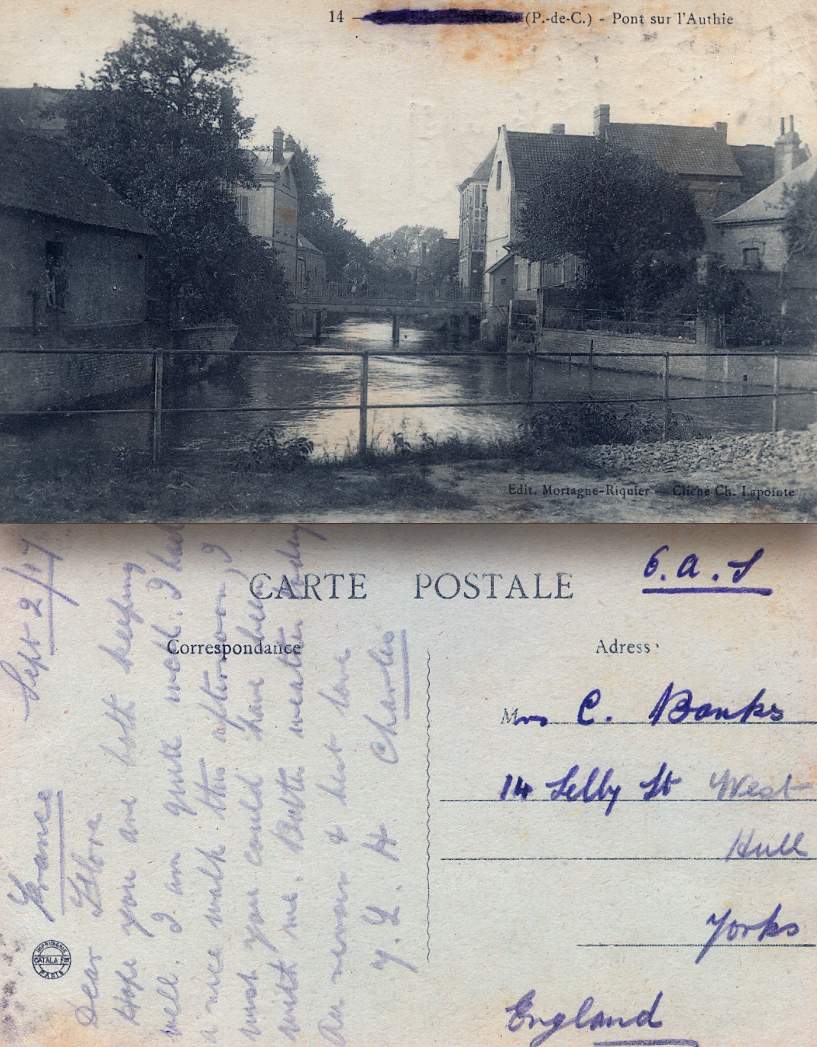 14 — (P.-de-C.) - Pont sur l'Authie
Edit. Mortagne-Riquier — Cliché Ch. Lapointe
CARTE POSTALE
6.a.S
Correspondance
Adress
France Sept 2/17
Dear Flora
Hope you are both keeping
well. I am quite well. I had
a nice walk this afternoon, I
wish you could have been
with me. weather today
Au revoir & best love
Y. L. H. Charles
Mrs C. Banks
14 Selby St West
Hull
Yorks
England
IMPRIMERIE
CATALA
PARIS